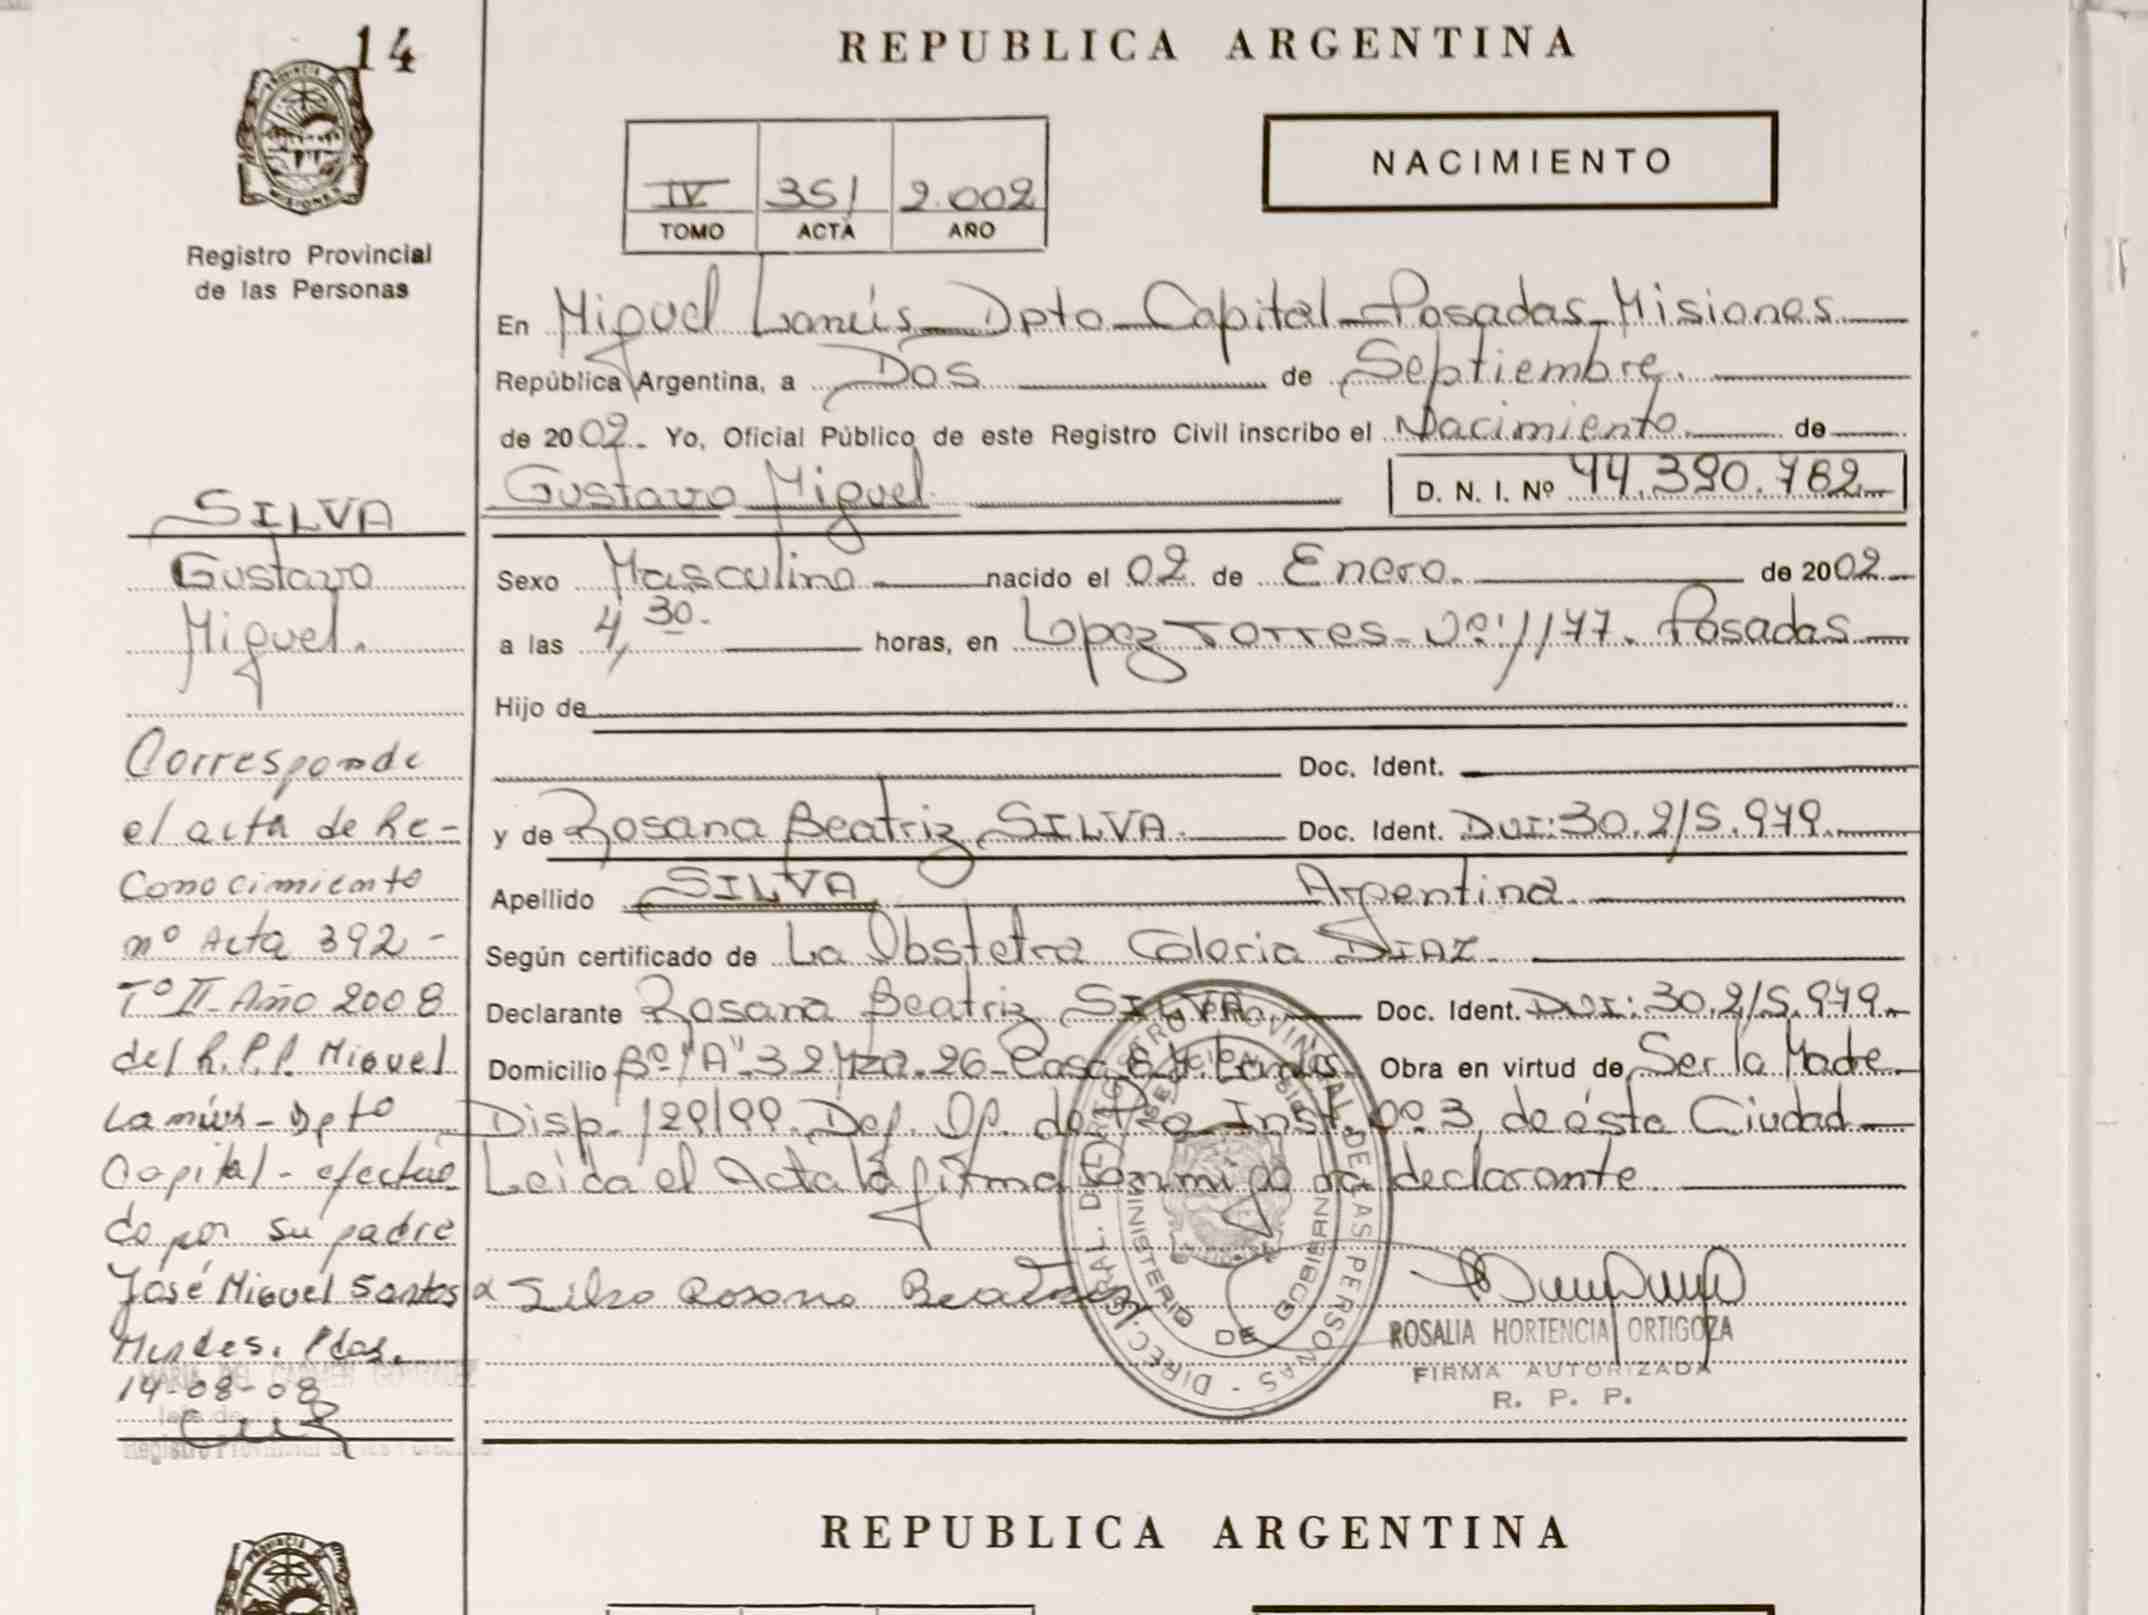 14
REPUBLICA ARGENTINA
IV 351 2.002
TOMO ACTA AÑO
NACIMIENTO
Registro Provincial
de las Personas
En Miguel Lanús Dpto Capital Posadas Misiones
República Argentina, a Dos de Septiembre.
de 2002. Yo, Oficial Público de este Registro Civil inscribo el Nacimiento de
Gustavo Miguel D. N. I. Nº 44.390.762
SILVA
Gustavo
Miguel.
Sexo Masculino nacido el 02 de Enero. de 2002
a las 4,30. horas, en Lopez Torres Nº 1147. Posadas
Hijo de
Doc. Ident.
y de Rosana Beatriz SILVA. Doc. Ident. DNI: 30.215.979.
Apellido SILVA Argentina.
Según certificado de La Obstetra Coloria DIAZ
Declarante Rosana Beatriz SILVA. Doc. Ident. DNI: 30.215.979.
Domicilio Bº "A" 32 Mza. 26 Casa M. Lanús Obra en virtud de Ser la Madre
Disp. 129/99. Def. Of. de Pra Inst. Nº 3, de ésta Ciudad
Leída el Acta la firma conmigo la declarante.
Silva Rosana Beatriz
ROSALIA HORTENCIA ORTIGOZA
FIRMA AUTORIZADA
R. P. P.
DIREC. GRAL. DEL REGISTRO PROVINCIAL DE LAS PERSONAS
MINISTERIO DE GOBIERNO
Corresponde
el acta de Re-
conocimiento
nº Acta 392-
Tº II-Año 2008
del R.P.P. Miguel
Lanús-Dpto
Capital-efectua
do por su padre
José Miguel Santos
Mendes. Pdas.
14-08-08
REPUBLICA ARGENTINA